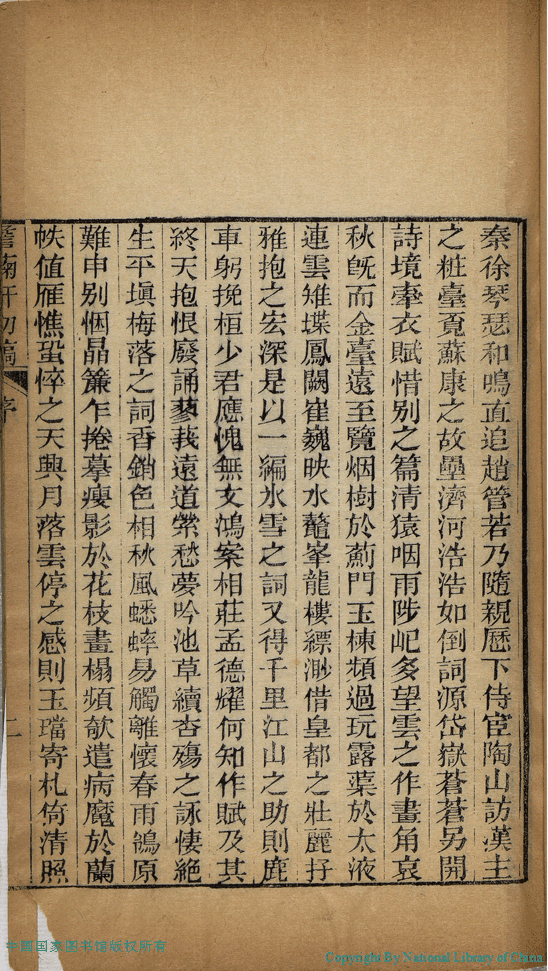 秦徐琴瑟和鳴直追趙管若乃隨親歷下侍宦陶山訪漢主
之粧臺覔蘇康之故壘濟河浩浩如倒詞源岱嶽蒼蒼另開
詩境牽衣賦惜别之篇清猿咽雨陟屺多望雲之作畫角哀
秋旣而金臺遠至覽烟樹於薊門玉棟頻過玩露蕖於太液
連雲雉堞鳳闕崔巍映水鼇峯龍樓縹渺借皇都之壯麗抒
雅抱之宏深是以一編氷雪之詞又得千里江山之助則鹿
車躬挽桓少君應愧無文鴻案相莊孟德耀何知作賦及其
終天抱恨廢誦蓼莪遠道縈愁夢吟池草續杏殤之詠悽絶
生平塡梅落之詞香銷色相秋風蟋蟀易觸離懷春雨鶺原
難申别悃晶簾乍捲摹瘦影於花枝畫榻頻欹遣病魔於蘭
帙值雁憔蛩悴之天興月落雲停之感則玉璫寄札倚清照
初稿 序 二
中国国家图书馆版权所有
Copyright By National Library of China